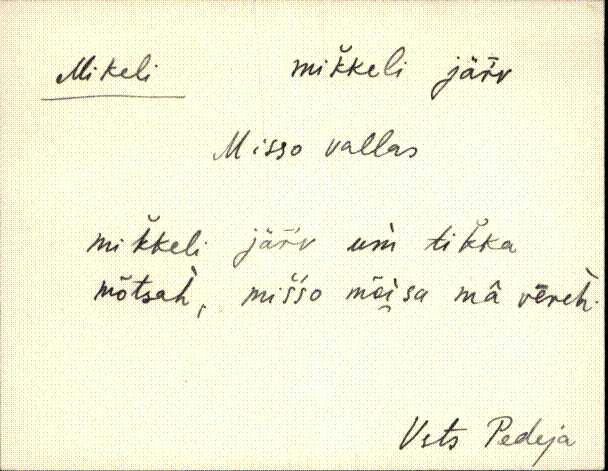 Mikeli mik̆keli jär̄v
Misso vallas
mik̆keli jär̄v um̀ tik̆ka
mõtsah̀, miśśo mõi̬sa mâ vēreh̀.
Vsts Pedeja